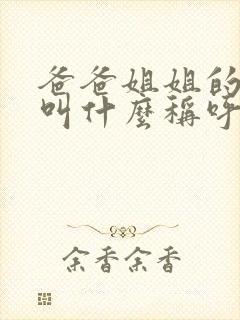 爸爸姐姐的
叫什麼稱呼
余香余香